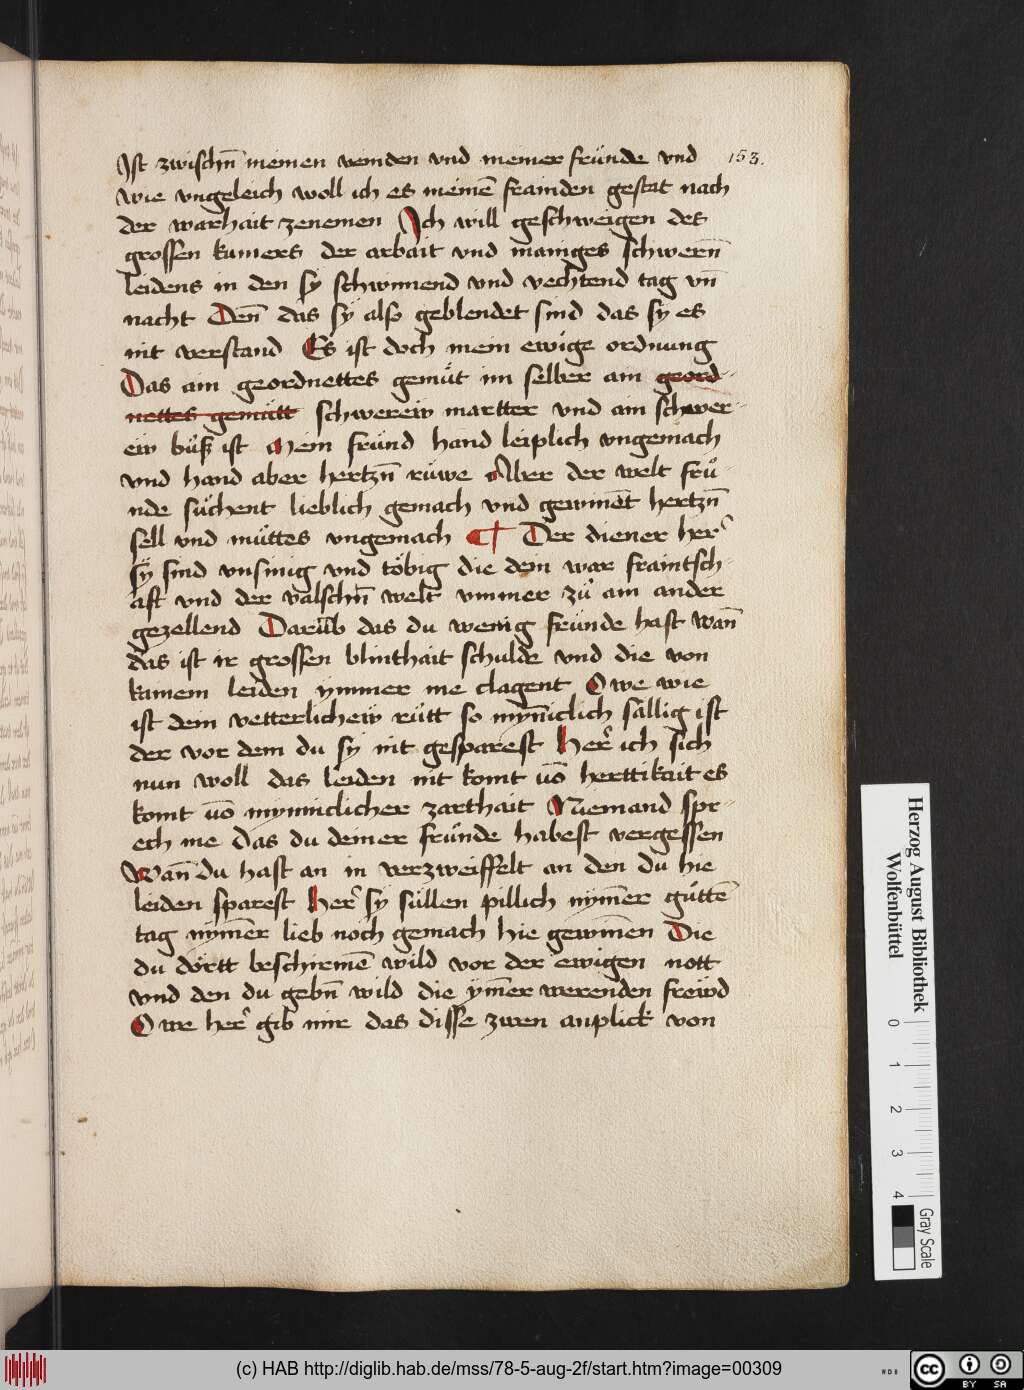 Ist zwischn̄ meinen veinden vnd meiner fründe vnd
153.
wie vngeleich woll ich es meinē frainden gestat nach
der warhait zenemen Ich will geschweigen des
grossen kumers der arbait vnd maniges schwern̄
leidens in den sÿ schwimend vnd vechtend tag vn̄
nacht Den̄ das sÿ also geblendet sind das sy es
nit verstand Es ist doch mein ewige ordnung
Das ain geordnettes gemüt im selber am geord-
nettes gemütt schwerew martter vnd am schwer-
ew büß ist Mein fründ hand leiplich vngemach
vnd hand aber hertzn̄ rüwe Aber der welt frü-
nde süchent lieblich gemach vnd gewinēt hertzn̄
sell vnd müttes vngemach ¶ Der diener her
sÿ sind vnsinig vnd töbig die dein war fraintsch-
aft vnd der valschn̄ welt ymmer zů am ander
gezellend Darūb das du wenig fründe hast wan̄
das ist ir grossen blinthait schulde vnd die von
kainem leiden ymmer me clagent O we wie
ist dein vetterlichew rütt so myn̄iclich sällig ist
der vor dem du sy nit gesparest Her ich sich
nun woll das leiden nit komt vō herttikait es
komt vō mynniclicher zarthait Niemand spr-
ech me das du deiner fründe habest vergessen
Wan̄ du hast an in verzweiffelt an den du hie
leiden sparest Her sy süllen pillich nym̄er güttē
tag nym̄er lieb noch gemach hie gewin̄en Die
du dörtt beschirmē wild vor der ewigen nott
vnd den du gebn̄ wild die ym̄er werenden frewd
O we her gib mir das disse zwen anplick von
Herzog August Bibliothek
Wolfenbüttel
0 1 2 3 4
Gray Scale
(c) HAB http://diglib.hab.de/mss/78-5-aug-2f/start.htm?image=00309
WDB
cc BY SA